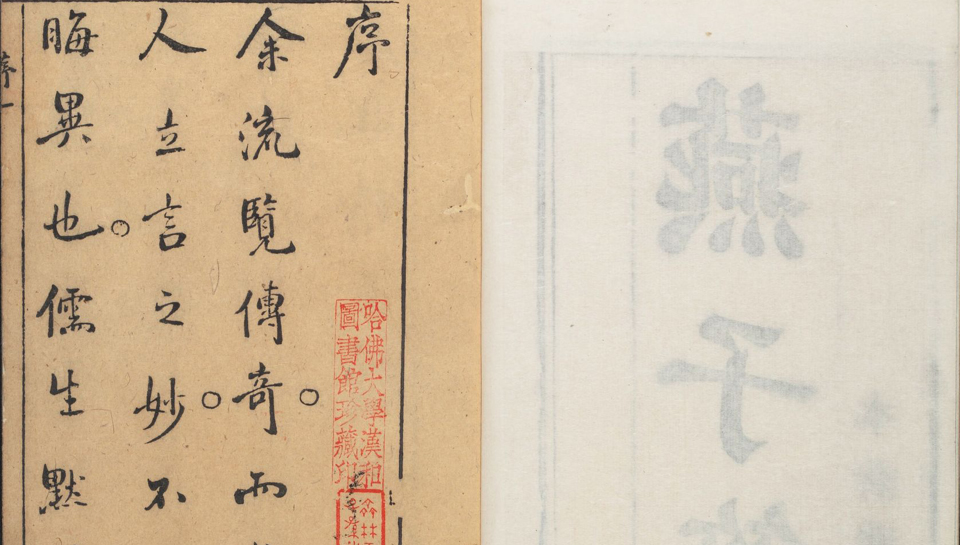 序
余流覽傳奇。而
人立言之妙。不
晦異也。儒生默
哈佛大學漢和
圖書館珍藏印
序一
燕子